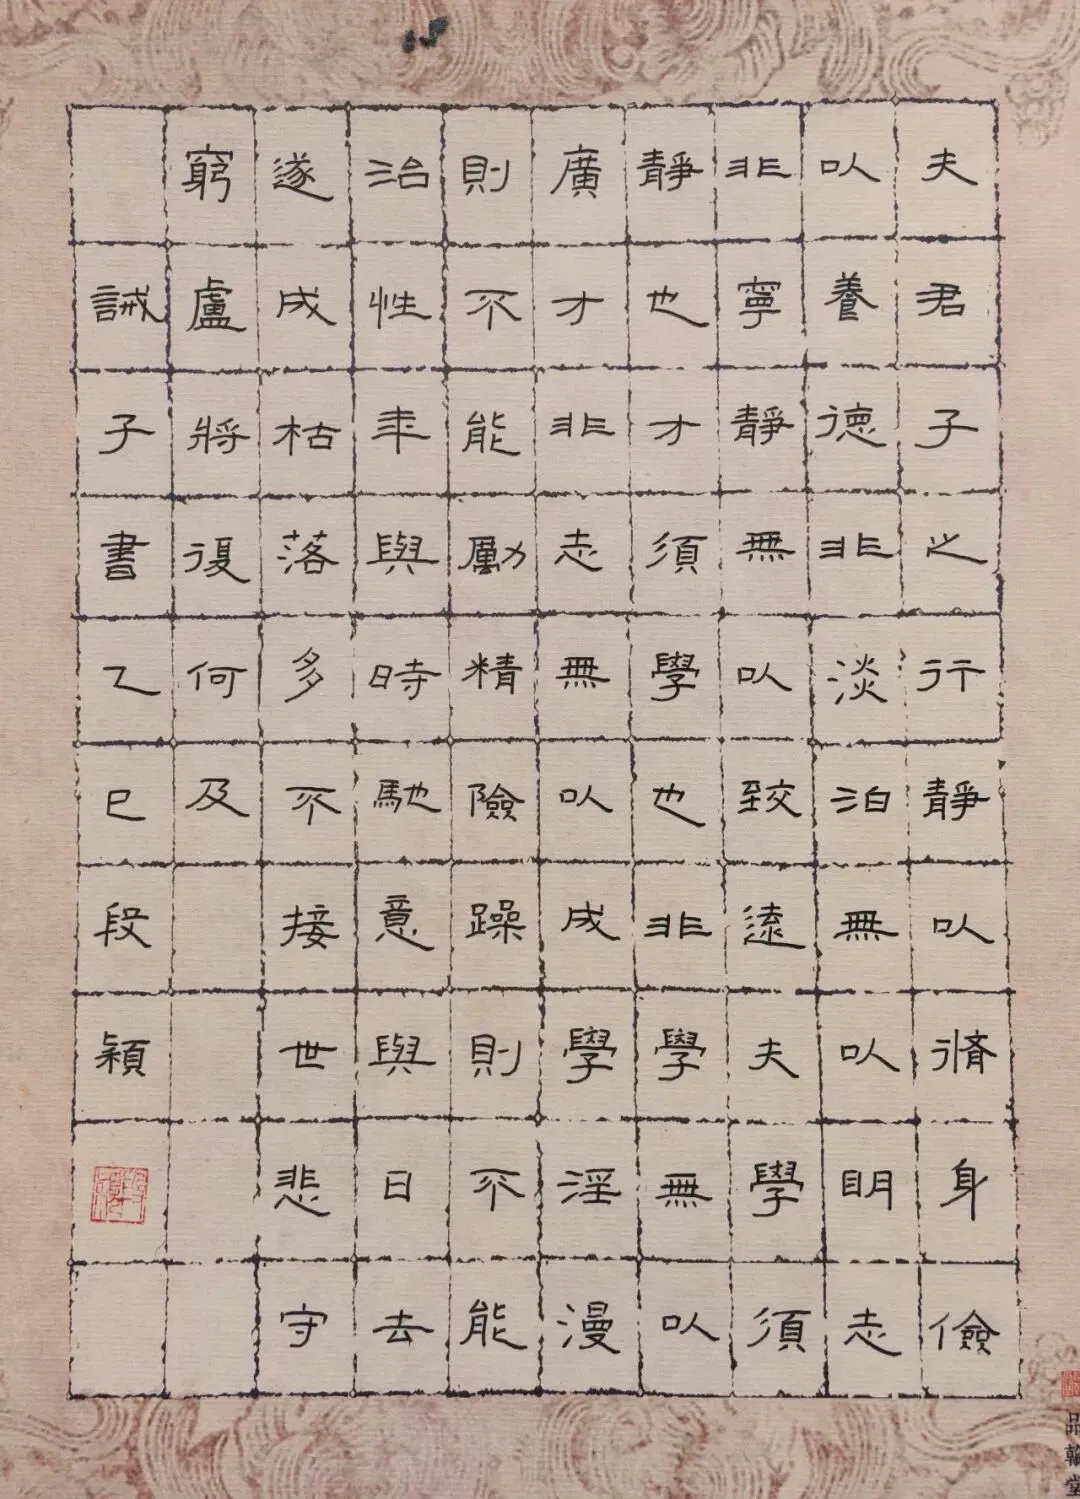 夫君子之行靜以脩身儉
以養德非淡泊無以明志
非寧靜無以致遠夫學須
靜也才須學也非學無以
廣才非志無以成學淫漫
則不能勵精險躁則不能
治性年與時馳意與日去
遂成枯落多不接世悲守
窮盧將復何及
誡子書乙巳段穎
品翰堂